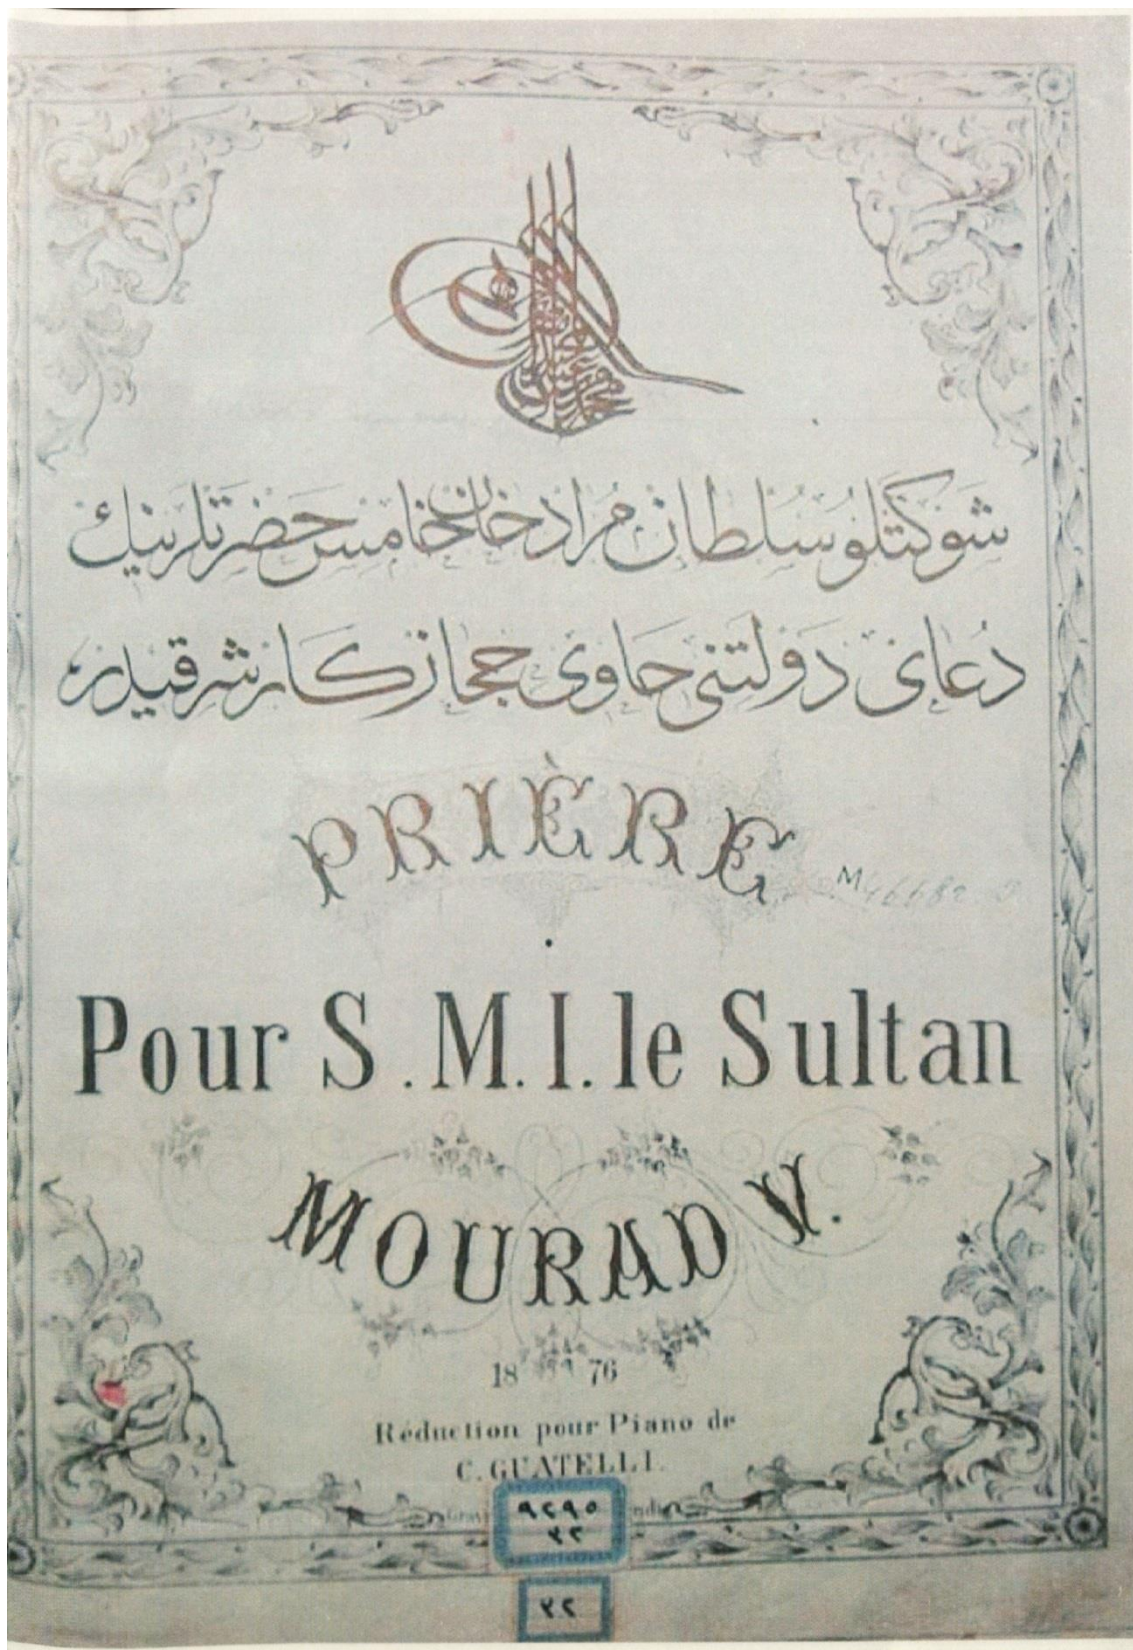 شوكتلو سلطان مراد خان خامس حضرتلرينك
دعاى دولتنى حاوى حجازكار شرقيدر
PRIÈRE
M
Pour S.M.I. le Sultan
MOURAD V.
18 76
Réduction pour Piano de
C. GUATELLI.
٩٢٩٥
٢٢
٢٢